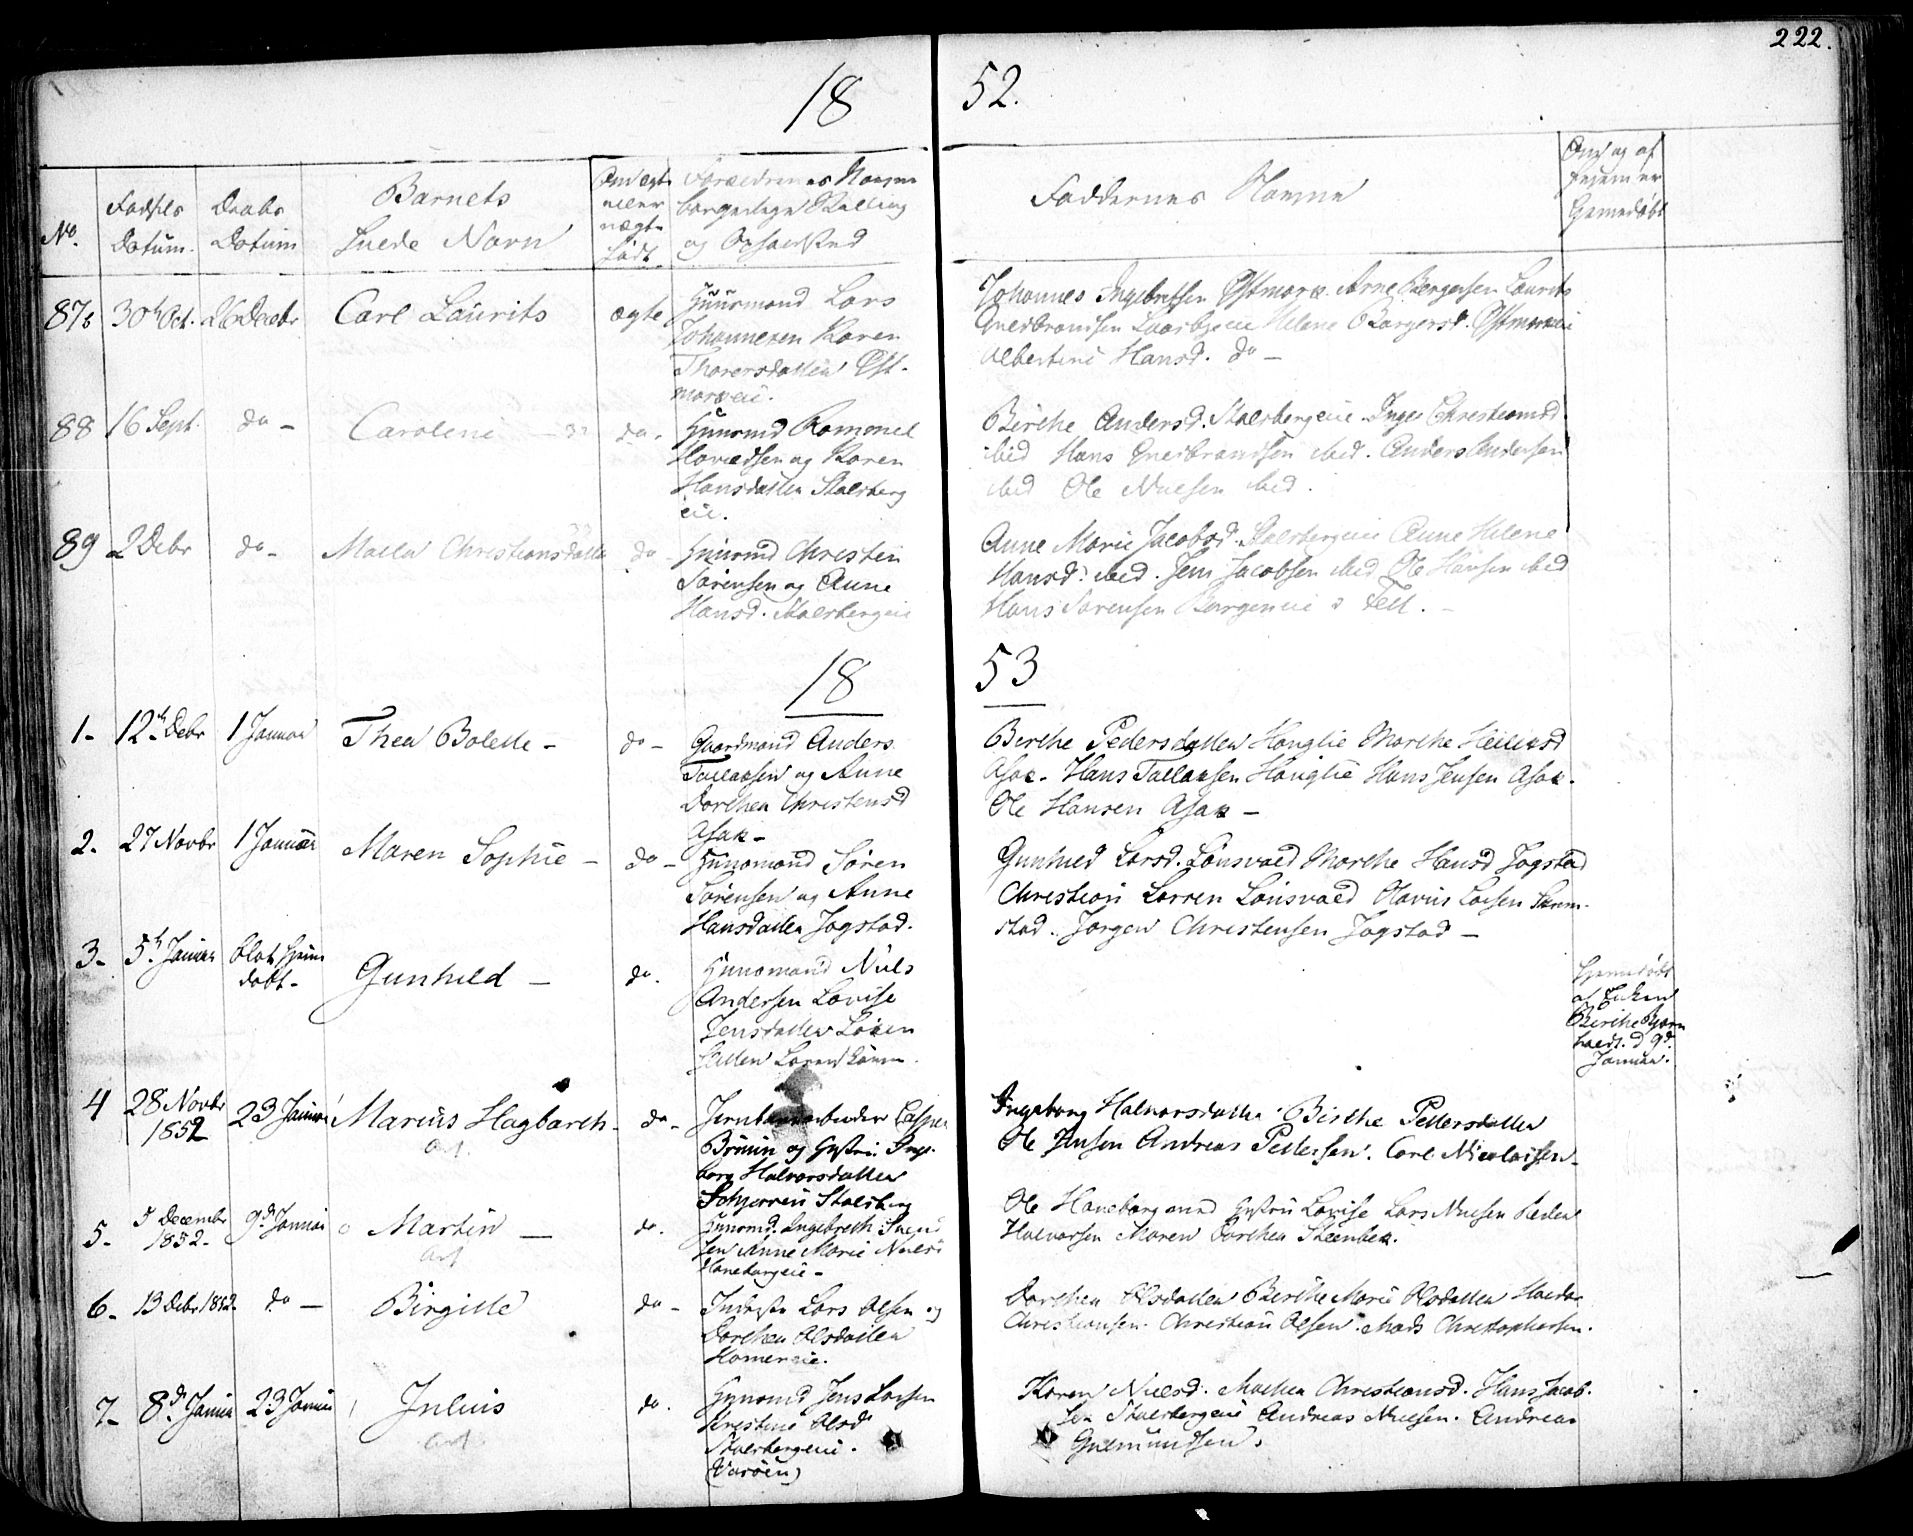 222.
18 52.
No.
Fødsels Datum.
Daabs Datum
Barnets fulde Navn
Om ægte eller uægte født.
Forældrenes Navne borgerlige Stilling og Opholdsted
Faddernes Navne
Om og af hvem er hjemedøbt
87. 30th Oct. 26 Decebr Carl Laurits ægte Huusmand Lars
Johannesen Karen
Thorersdatter Øst-
markeie.
Johannes Ingebretsen Østmark. Arne Børgersen Laurits
Gulbrandsen Helene Børgersd. Østmarkeie
Albertine Hansd. do -
88 16 Sept. do - Caroline do. Huusmd
Hovedsen og Karen
Hansdatter Stalsberg
eie.
Birthe Andersd. Stalsbergeie. Inger Christiansd.
ibid Hans Gulbrandsen ibid. Anders Andersen
ibid Ole Nielsen ibid.
89 2 Debr do - Mathea Christiansdatter do - Huusmd Christen
Sørensen og Anne
Hansd. Stalsbergeie
Anne Marie Jacobsd. Stalsbergeie Anne Helene
Hansd. ibid. Jens Jacobsen ibid Ole Hansen ibid
Hans Sørensen
18 53
1- 12th Debr 1 Januar Thea Bolette - do - Gaardmand Anders
Tollefsen og Anne
Dorthea Christensd
Asak -
Berthe Pedersdatter Hauglie Marthe
Asak. Hans Tollefsen Hauglie Hans Jensen Asak.
Ole Hansen Asak -
2. 27 Novbr 1 Januar Maren Sophie - do - Huusmand Søren
Sørensen og Anne
Hansdatter Jogstad.
Gunhild Larsd. Lønsvold Marthe Hansd Jogstad
Christian Larsen Lønsvold Olavus Larsen Skrim-
stad. Jørgen Christensen Jogstad -
3- 5th Januar blot hjem
døbt - Gunhild - do. Huusmand Niels
Andersen Lovise
Jensdatter
Hjemedøbt
af Enken
Birthe
d 9d.
Januar.
4 28 Novbr
1852 23 Januar Marius Hagbarth - do - Jernbanearbeider Casper
Bruun og Hustru Inge-
borg Halvorsdatter
Stalsberg
Ingeborg Halvorsdatter. Birthe Pettersdatter
Ole Jensen Andreas Pettersen. Carl Nicolaisen -
5- 5 Decembr
1852 - 9d Januar Martin - do. Huusmd. Ingebreth
sen Anne Marie Nielsd
Haneborgeie -
Ole Haneborg med Hustru Lovise Lars Nielsen Peder
Halvorsen Maren Dorthea Steenbek.
6- 13 Debr 1852. do - Birgitte do - Lars Olsen og
Dorthea Olsdatter
Dorthea Olsdatter Berthe Marie Olsdatter
Christiansen. Christian Olsen. Mads Christophersen.
7- 8d Januar 23 Januar Julius do. Huusmd Jens Larsen
Kirstine Olsd
Stalsbergeie.
Karen Nielsd. Mathea Christiansd. Hans Jacob-
sen Stalsbergeie Andreas Nielsen. Andreas
Gulmundsen.